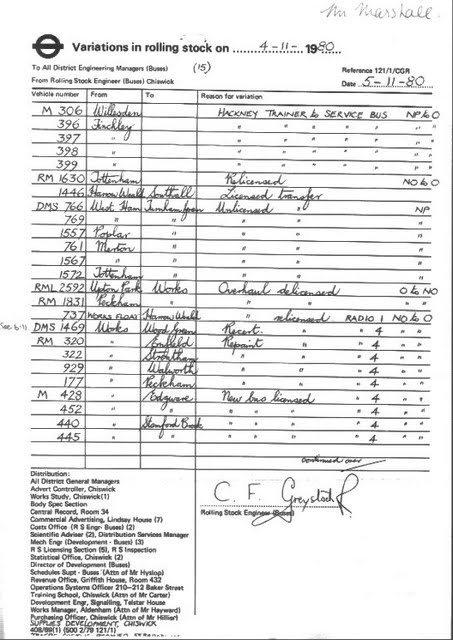 Mr Marshall.
Variations in rolling stock on 4-11- 1980
To All District Engineering Managers (Buses) (15) Reference 121/1/CGR
From Rolling Stock Engineer (Buses) Chiswick Date 5-11-80
Vehicle number From To Reason for variation
M 306 Willesden HACKNEY TRAINER to SERVICE BUS NP to O
396 Finchley " " " " " " "
397 " " " " " " " "
398 " " " " " " " "
399 " " " " " " " "
RM 1630 Tottenham Relicensed NO to O
1446 Harrow Weald Southall Licensed transfer
DMS 766 West Ham Turnham Green Unlicensed " NP
769 " " " " "
1557 Poplar " " " "
761 Merton " " " "
1567 " " " " "
1572 Tottenham " " " "
RML 2592 Upton Park Works Overhaul delicensed O to NO
RM 1831 Peckham " " " " "
737 WORKS FLOAT Harrow Weald " relicensed RADIO 1 NO to O
See 6-11 DMS 1469 Works Wood Green Recert. " 4 " "
RM 320 " Enfield Repaint " 4 " "
322 " Streatham " " 4 " "
929 " Walworth " " 4 " "
177 " Peckham " " 4 " "
M 428 " Edgware New bus licensed " 4 " "
452 " " " " " " 4 " "
440 " Stamford Brook " " " " 4 " "
445 " " " " " " 4 " "
continued over
Distribution:
All District General Managers
Advert Controller, Chiswick
Works Study, Chiswick(1)
Body Spec Section
Central Record, Room 34
Commercial Advertising, Lindsay House (7)
Costs Office (R S Engr- Buses) (2)
Scientific Adviser (2), Distribution Services Manager
Mech Engr (Development - Buses) (3)
R S Licensing Section (5), R S Inspection
Statistical Office, Chiswick (2)
Director of Development (Buses)
Schedules Supt - Buses (Attn of Mr Hyslop)
Revenue Office, Griffith House, Room 432
Operations Systems Officer 210-212 Baker Street
Training School, Chiswick (Attn of Mr Carter)
Development Engr, Signalling, Telstar House
Works Manager, Aldenham (Attn of Mr Hayward)
Purchasing Officer, Chiswick (Attn of Mr Hillier)
SUPPLIES DEVELOPMENT, CHISWICK
408/69(1) (500 2/79 121/1)
C. F. Greystock
Rolling Stock Engineer (Buses)